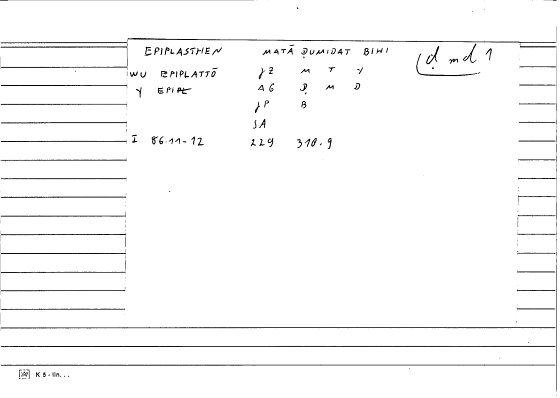 EPIPLASTHEN MATĀ ḌUMIDAT BIHI (ḍ md 1
WU EPIPLATTŌ M T Y
Y AG Ḍ M D
B
SA
I 86.11-12 229 310.9
K 5 - lin...